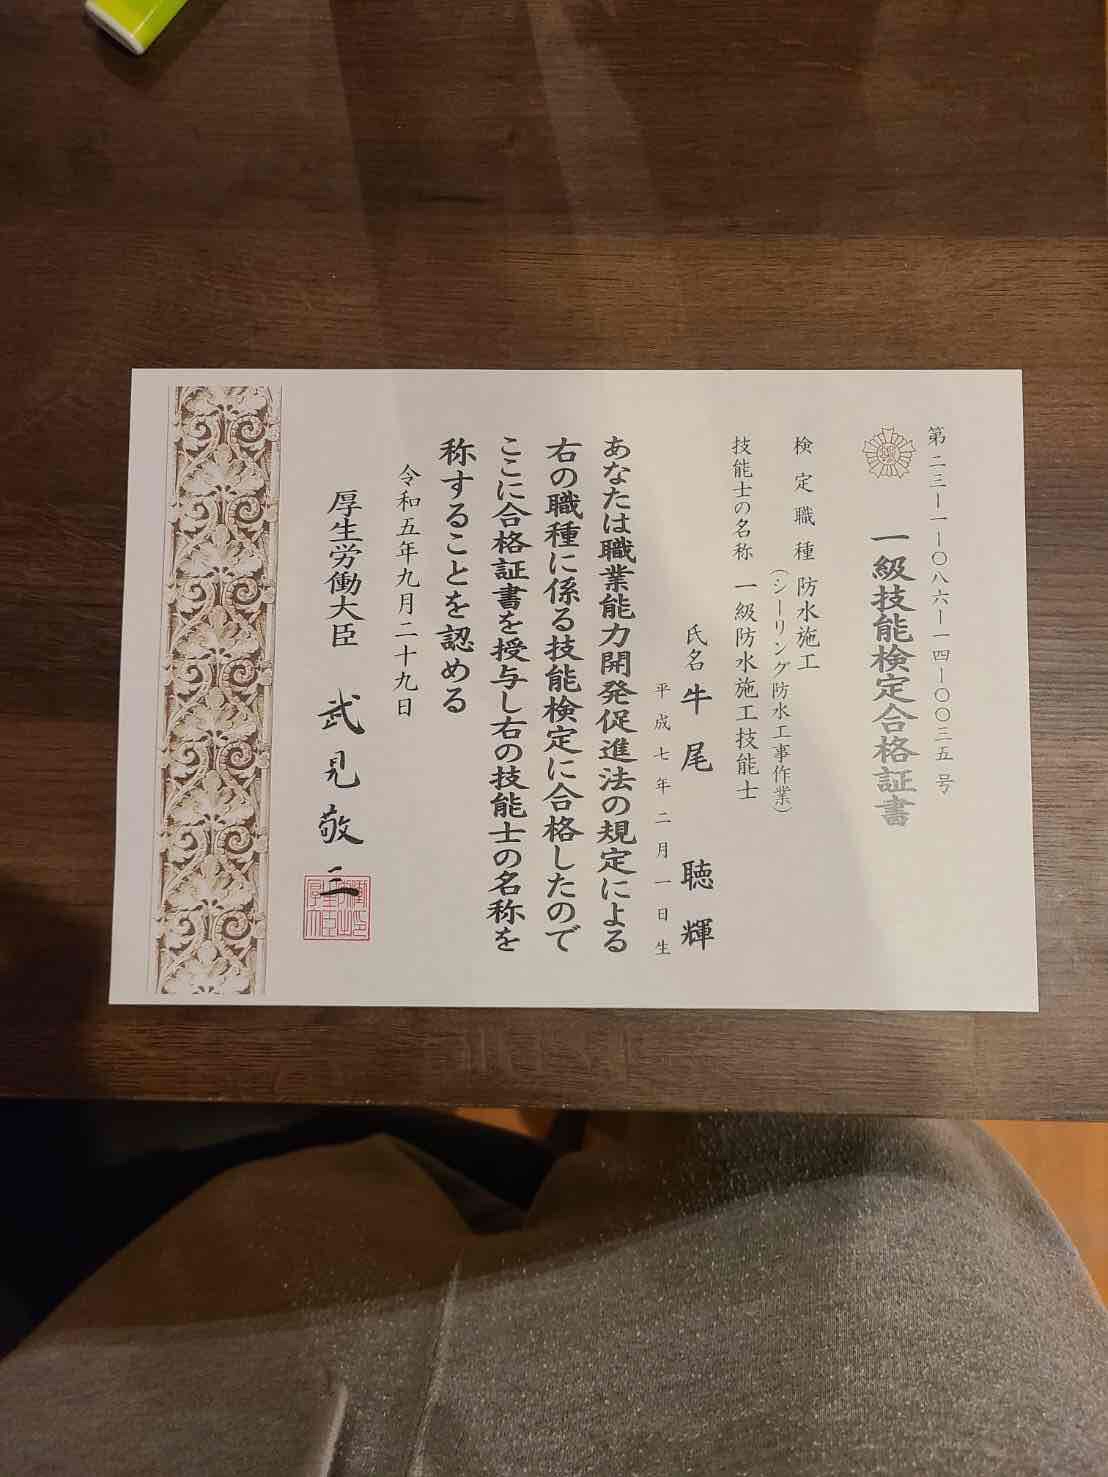 第二三―一―〇八六―一四―〇〇三五号
一級技能検定合格証書
検定職種 防水施工
（シーリング防水工事作業）
技能士の名称 一級防水施工技能士
氏名 牛尾 聴輝
平成七年二月一日生
あなたは職業能力開発促進法の規定による
右の職種に係る技能検定に合格したので
ここに合格証書を授与し右の技能士の名称を
称することを認める
令和五年九月二十九日
厚生労働大臣 武見敬三